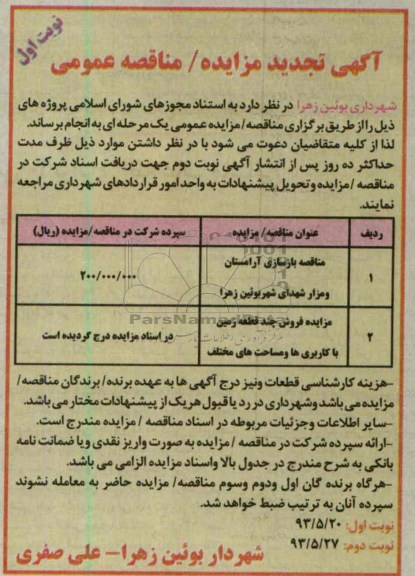 نوبت اول
آگهی تجدید مزایده/ مناقصه عمومی
شهرداری بوئین زهرا در نظر دارد به استناد مجوزهای شورای اسلامی پروژه های
ذیل را از طریق برگزاری مناقصه/ مزایده عمومی یک مرحله ای به انجام برساند.
لذا از کلیه متقاضیان دعوت می شود با در نظر داشتن موارد ذیل ظرف مدت
حداکثر ده روز پس از انتشار آگهی نوبت دوم جهت دریافت اسناد شرکت در
مناقصه / مزایده وتحویل پیشنهادات به واحد امور قراردادهای شهرداری مراجعه
نمایند.
ردیف عنوان مناقصه/ مزایده سپرده شرکت در مناقصه /مزایده (ریال)
۱ مناقصه بازسازی آرامستان ومزار شهدای شهربوئین زهرا ۲۰۰/۰۰۰/۰۰۰
۲ مزایده فروش چند قطعه زمین با کاربری ها ومساحت های مختلف در اسناد مزایده درج گردیده است
ParsNamadData
-هزینه کارشناسی قطعات ونیز درج آگهی ها به عهده برنده/ برندگان مناقصه/
مزایده می باشد وشهرداری در رد یا قبول هریک از پیشنهادات مختار می باشد.
-سایر اطلاعات وجزئیات مربوطه در اسناد مناقصه / مزایده مندرج است.
-ارائه سپرده شرکت در مناقصه / مزایده به صورت واریز نقدی ویا ضمانت نامه
بانکی به شرح مندرج در جدول بالا واسناد مزایده الزامی می باشد.
-هرگاه برنده گان اول ودوم وسوم مناقصه/ مزایده حاضر به معامله نشوند
سپرده آنان به ترتیب ضبط خواهد شد.
نوبت اول: ۹۳/۵/۲۰
نوبت دوم: ۹۳/۵/۲۷
شهردار بوئین زهرا- علی صفری